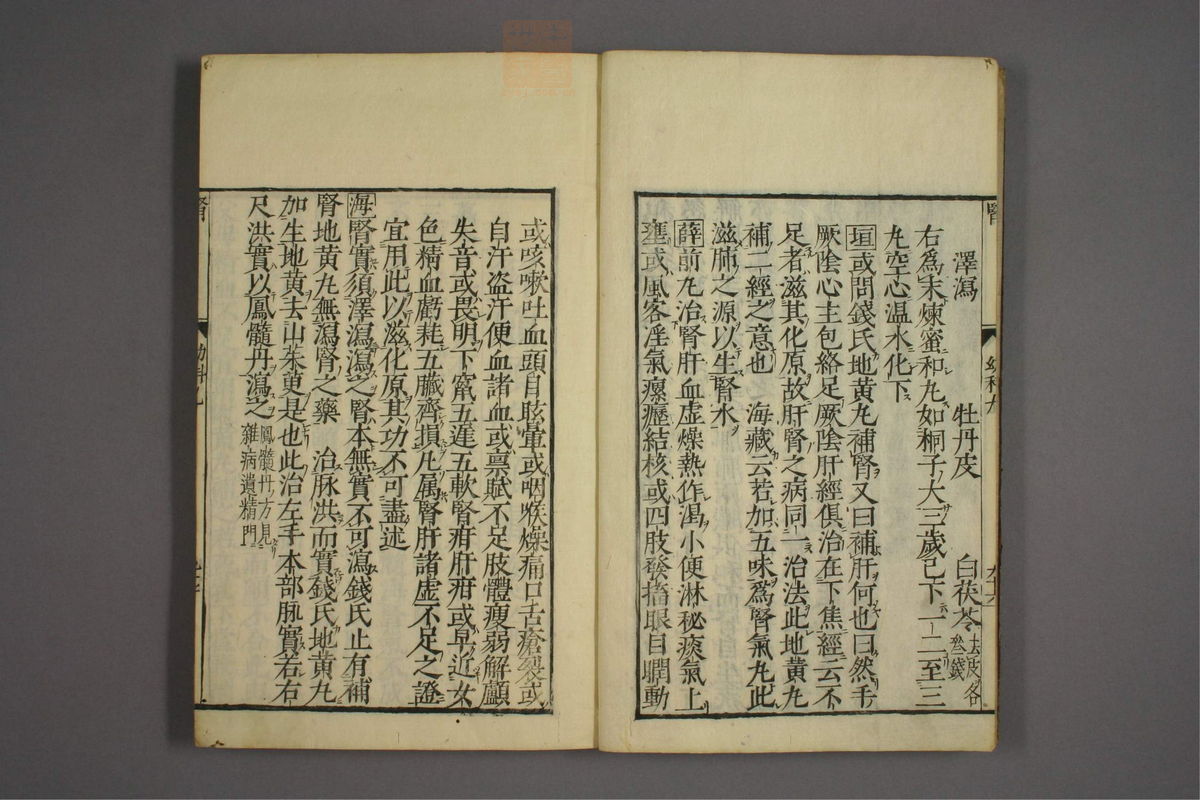 澤瀉　牡丹皮　白茯苓去皮各叁錢
右爲末煉蜜和丸如桐子大三歲已下一二至三
丸空心温水化下
垣或問錢氏地黄丸補腎又曰補肝何也曰然手
厥陰心主包絡足厥陰肝經俱治在下焦經云不
足者滋其化原故肝腎之病同一治法此地黄丸
補二經之意也　海藏云若加五味爲腎氣丸此
滋肺之源以生腎水
薛前丸治腎肝血虛燥熱作渴小便淋秘痰氣上
壅或風客淫氣瘰癧結核或四肢發搐眼目瞤動
或咳嗽吐血頭目眩暈或咽喉燥痛口舌瘡裂或
自汗盗汗便血諸血或禀賦不足肢體瘦弱解顱
失音或畏明下竄五遲五軟腎疳肝疳或早近女
色精血虧耗五臟齊損凢属腎肝諸虛不足之證
宜用此以滋化原其功不可盡述
海腎實須澤瀉瀉之腎本無實不可瀉錢氏止有補
腎地黄丸無瀉腎之藥　治脉洪而實錢氏地黄丸
加生地黄去山茱萸是也此治左手本部脉實若右
尺洪實以鳳髓丹瀉之鳳髓丹方見
雜病遺精門
腎
幼科九
腎
幼科九